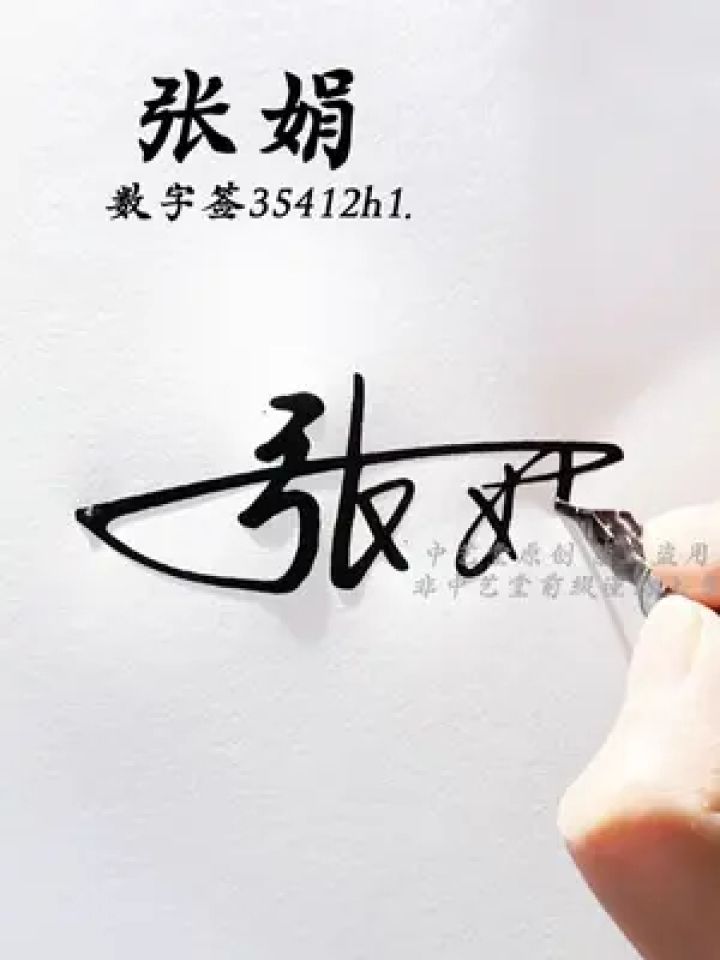 张娟
数字签35412h1.
张
中艺堂原创 盗用
非中艺堂前缀